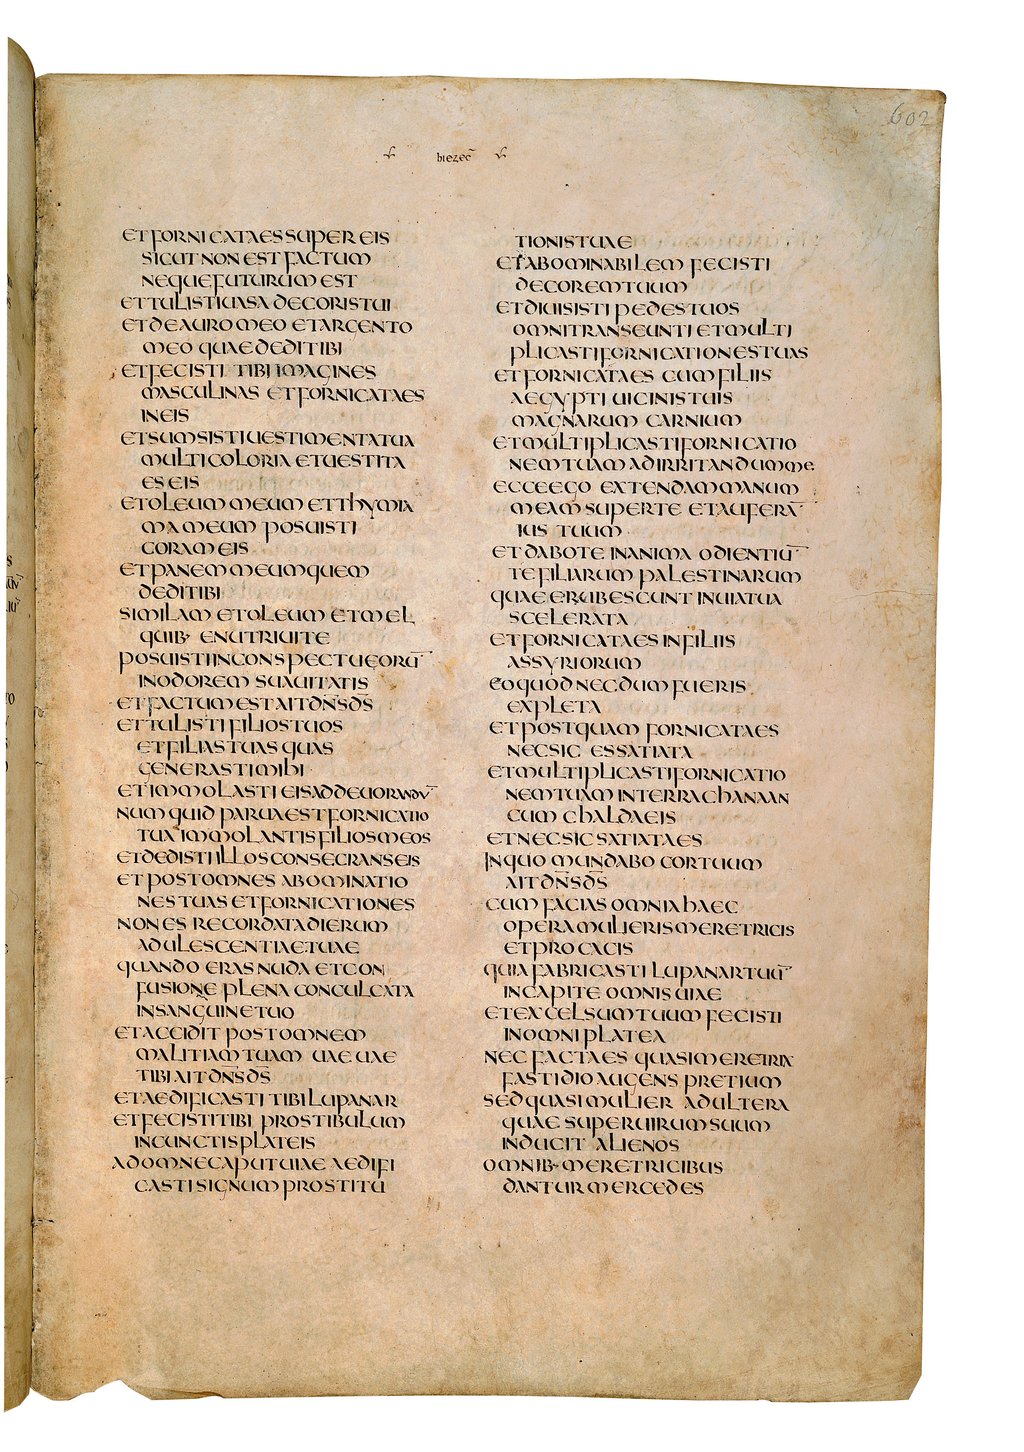 602
hiezec̄
ET FORNICATA ES SUPER EIS
SICUT NON EST FACTUM
NEQUE FUTURUM EST
ET TULISTI UASA DECORIS TUI
ET DE AURO MEO ET ARGENTO
MEO QUAE DEDI TIBI
ET FECISTI TIBI IMAGINES
MASCULINAS ET FORNICATA ES
IN EIS
ET SUMSISTI UESTIMENTA TUA
MULTICOLORIA ET UESTITA
ES EIS
ET OLEUM MEUM ET THYMIA
MA MEUM POSUISTI
CORAM EIS
ET PANEM MEUM QUEM
DEDI TIBI
SIMILAM ET OLEUM ET MEL
QUIB· ENUTRIUI TE
POSUISTI IN CONSPECTU EORŪ
IN ODOREM SUAUITATIS
ET FACTUM EST AIT DN̄S D̄S
ET TULISTI FILIOS TUOS
ET FILIAS TUAS QUAS
GENERASTI MIHI
ET IMMOLASTI EIS AD DEUORANDŪ
NUMQUID PARUA EST FORNICATIO
TUA IMMOLANTIS FILIOS MEOS
ET DEDISTI ILLOS CONSECRANS EIS
ET POST OMNES ABOMINATIO
NES TUAS ET FORNICATIONES
NON ES RECORDATA DIERUM
ADULESCENTIAE TUAE
QUANDO ERAS NUDA ET CON
FUSIONE PLENA CONCULCATA
IN SANGUINE TUO
ET ACCIDIT POST OMNEM
MALITIAM TUAM UAE UAE
TIBI AIT DN̄S D̄S
ET AEDIFICASTI TIBI LUPANAR
ET FECISTI TIBI PROSTIBULUM
IN CUNCTIS PLATEIS
AD OMNE CAPUT UIAE AEDIFI
CASTI SIGNUM PROSTITU
TIONIS TUAE
ET ABOMINABILEM FECISTI
DECOREM TUUM
ET DIUISISTI PEDES TUOS
OMNI TRANSEUNTI ET MULTI
PLICASTI FORNICATIONES TUAS
ET FORNICATA ES CUM FILIIS
AEGYPTI UICINIS TUIS
MAGNARUM CARNIUM
ET MULTIPLICASTI FORNICATIO
NEM TUAM AD IRRITANDUM ME
ECCE EGO EXTENDAM MANUM
MEAM SUPER TE ET AUFERĀ
IUS TUUM
ET DABO TE IN ANIMA ODIENTIŪ
TE FILIARUM PALESTINARUM
QUAE ERUBESCUNT IN UIA TUA
SCELERATA
ET FORNICATA ES IN FILIIS
ASSYRIORUM
EO QUOD NECDUM FUERIS
EXPLETA
ET POSTQUAM FORNICATA ES
NEC SIC ES SATIATA
ET MULTIPLICASTI FORNICATIO
NEM TUAM IN TERRA CHANAAN
CUM CHALDAEIS
ET NEC SIC SATIATA ES
IN QUO MUNDABO COR TUUM
AIT DN̄S D̄S
CUM FACIAS OMNIA HAEC
OPERA MULIERIS MERETRICIS
ET PROCACIS
QUIA FABRICASTI LUPANAR TUŪ
IN CAPITE OMNIS UIAE
ET EXCELSUM TUUM FECISTI
IN OMNI PLATEA
NEC FACTA ES QUASI MERETRIX
FASTIDIO AUGENS PRETIUM
SED QUASI MULIER ADULTERA
QUAE SUPER UIRUM SUUM
INDUCIT ALIENOS
OMNIB· MERETRICIBUS
DANTUR MERCEDES